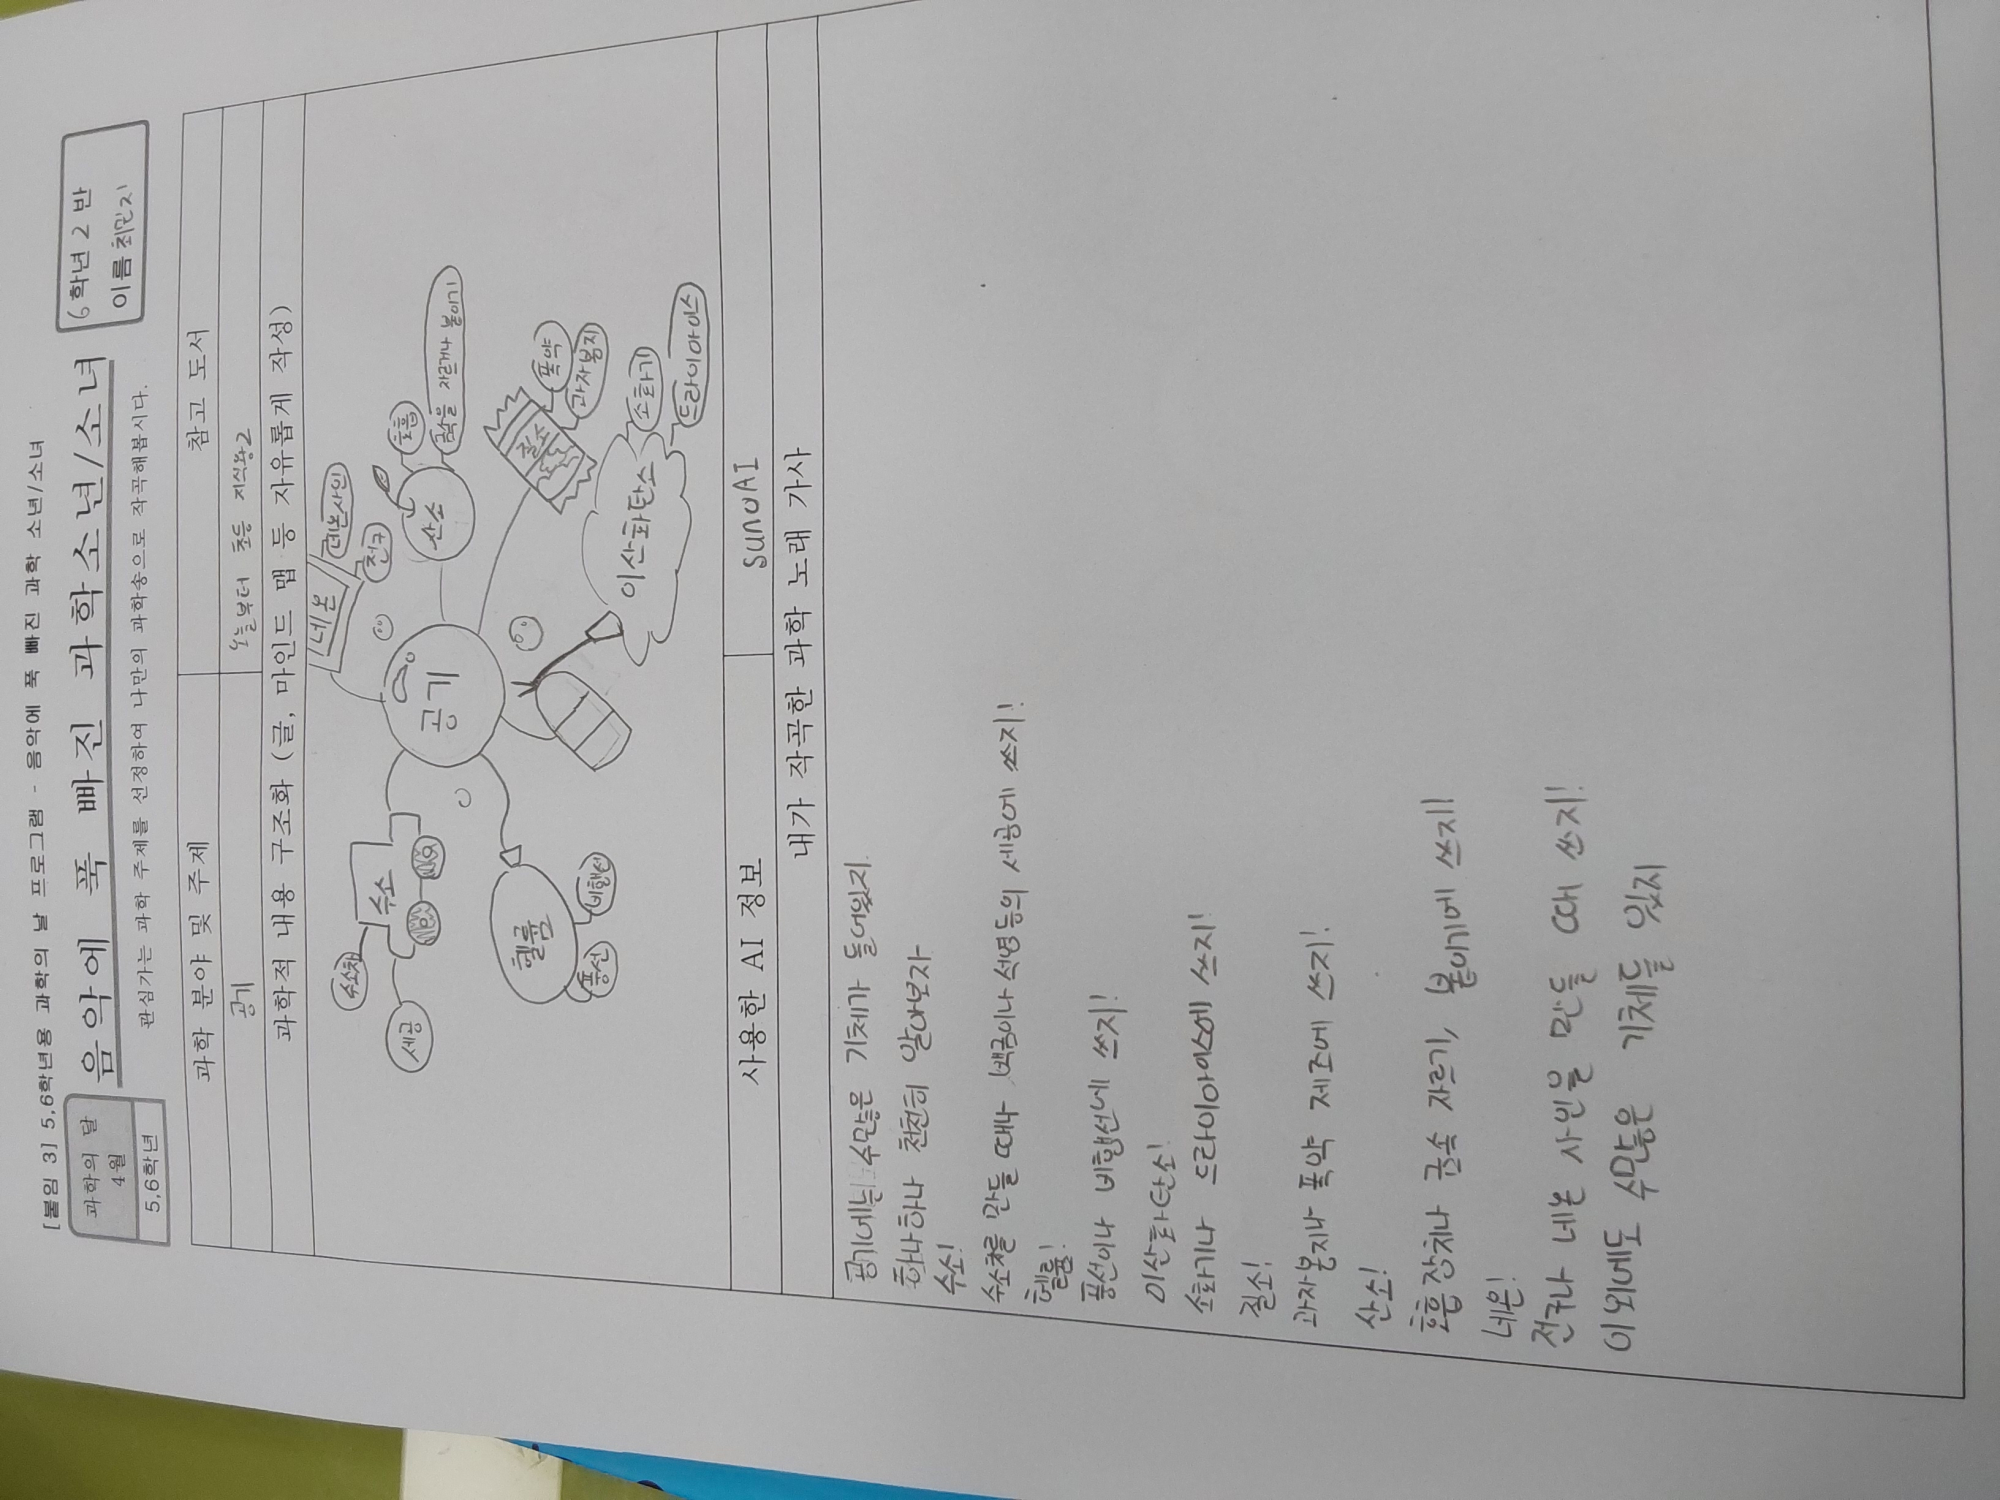 [붙임 3] 5,6학년용 과학의 날 프로그램 - 음악에 푹 빠진 과학 소년/소녀
과학의 달
4월
5,6학년
음악에 푹 빠진 과학소년/소녀
6학년 2 반
이름 최민지
관심가는 과학 주제를 선정하여 나만의 과학송으로 작곡해봅시다.
과학 분야 및 주제
참고 도서
공기
오늘부터 초등 지식왕2
과학적 내용 구조화 (글, 마인드 맵 등 자유롭게 작성)
공기
네온
네온사인
전구
산소
호흡
금속을 자르거나 붙이기
질소
폭약
과자봉지
이산화탄소
소화기
드라이아이스
헬륨
풍선
비행선
수소
수소차
세공
사용한 AI 정보
sunoAI
내가 작곡한 과학 노래 가사
공기에는 수많은 기체가 들어있지.
하나하나 천천히 알아보자
수소!
수소차를 만들 때나 백금이나 석영등의 세공에 쓰지!
헬륨!
풍선이나 비행선에 쓰지!
이산화탄소!
소화기나 드라이아이스에 쓰지!
질소!
과자봉지나 폭약 제조에 쓰지!
산소!
호흡장치나 금속 자르기, 붙이기에 쓰지!
네온!
전구나 네온 사인을 만들 때 쓰지!
이외에도 수많은 기체들 있지